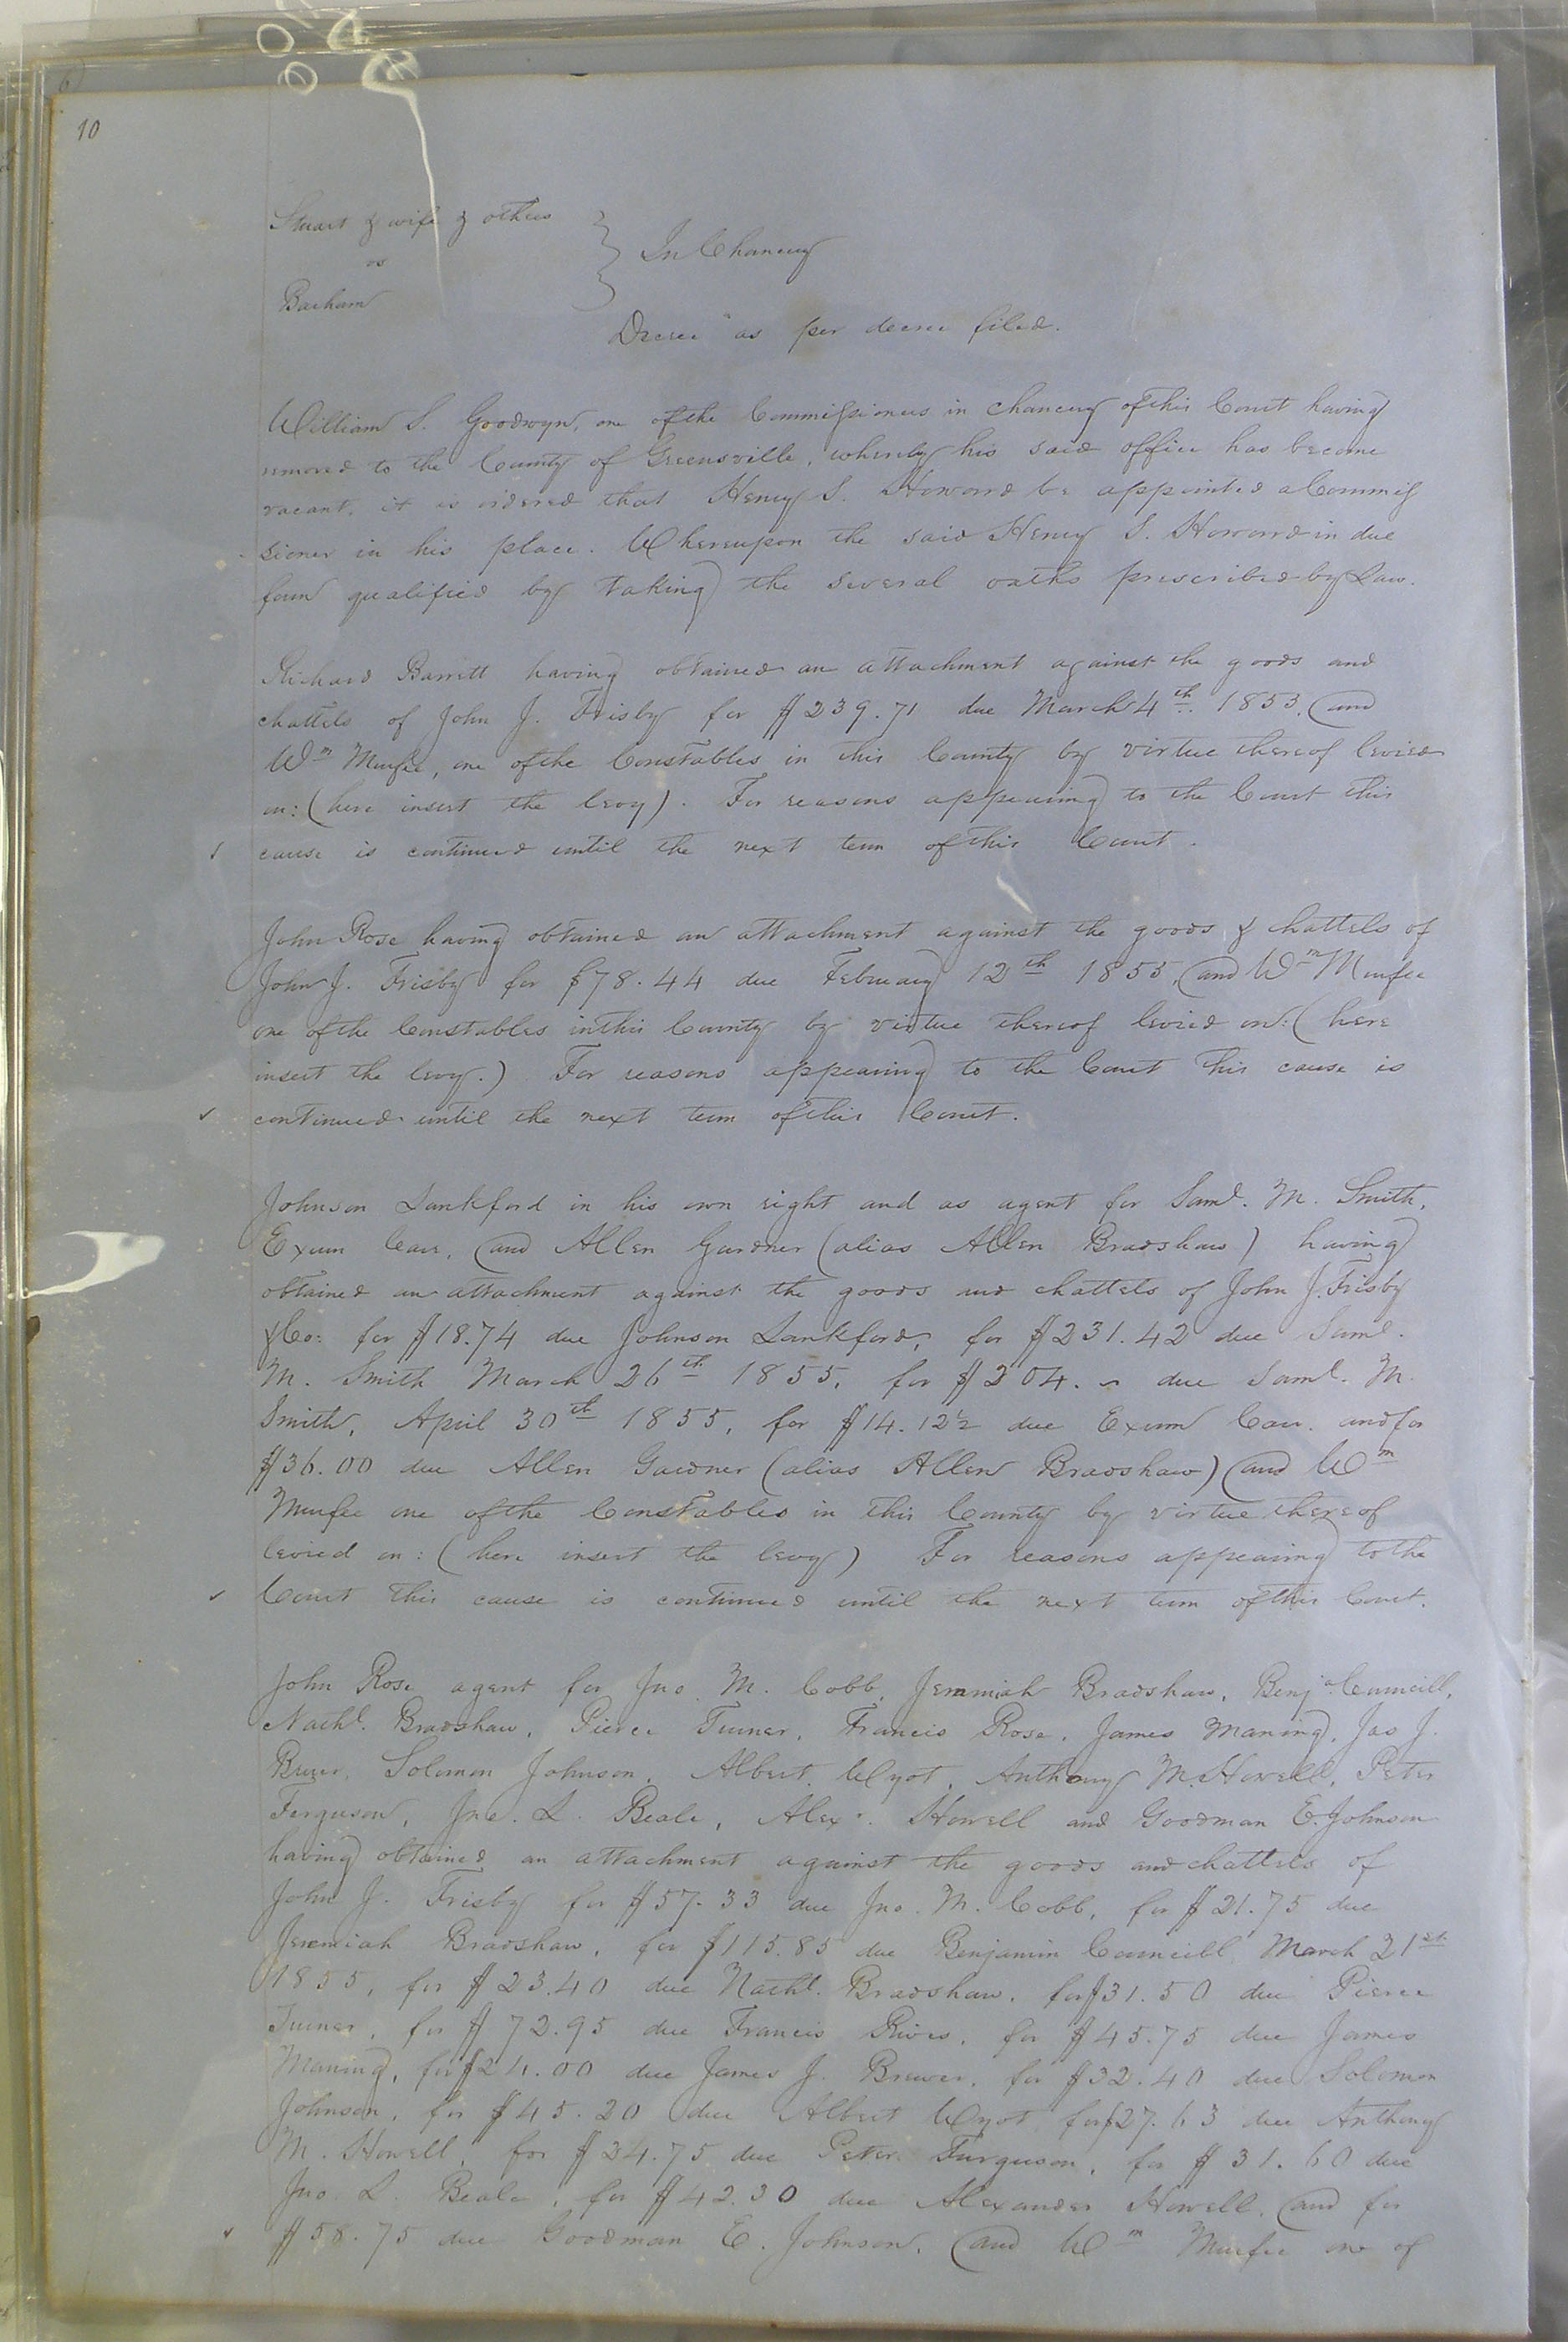 10
Stuart & wife & others
vs
Barham
In Chancery
Decree as per decree filed.
William S. Goodwyn, one of the Commissioners in chancery of this Court having
removed to the County of Greensville, whereby his said office has become
vacant, it is ordered that Henry S. Howard be appointed a Commis
sioner in his place. Whereupon the said Henry S. Howard in due
form qualified by taking the several oaths prescribed by Law.
Richard Barrett having obtained an attachment against the goods and
chattels of John J. Frisby for $239.71 due March 4th. 1853, and
Wm Murfee, one of the Constables in this County by virtue thereof levied
on: (here insert the levy). For reasons appearing to the Court this
cause is continued until the next term of this Court.
John Rose having obtained an attachment against the goods & chattels of
John J. Frisby for $78.44 due February 12th 1855, and Wm Murfee
one of the Constables in this County by virtue thereof levied on: (here
insert the levy.) For reasons appearing to the Court this cause is
continued until the next term of this Court.
Johnson Lankford in his own right and as agent for Saml. M. Smith,
Exum Carr, and Allen Gardner (alias Allen Bradshaw) having
obtained an attachment against the goods and chattels of John J. Frisby
& Co: for $18.74 due Johnson Lankford, for $231.42 due Saml.
M. Smith March 26th 1855, for $204. due Saml. M.
Smith, April 30th 1855, for $14.12½ due Exum Carr. and for
$36.00 due Allen Gardner (alias Allen Bradshaw) and Wm
Murfee one of the Constables in this County by virtue thereof
levied on: (here insert the levy) For reasons appearing to the
Court this cause is continued until the next term of this Court.
John Rose agent for Jno. M. Cobb, Jeremiah Bradshaw, Benja Councill,
Nathl. Bradshaw, Pierce Turner, Francis Rose, James Maning, Jas J.
Brewer, Solomon Johnson, Albert Wyot, Anthony M. Howell, Peter
Ferguson, Jno. L. Beale, Alexr. Howell and Goodman E. Johnson
having obtained an attachment against the goods and chattels of
John J. Frisby for $57.33 due Jno. M. Cobb, for $21.75 due
Jeremiah Bradshaw, for $115.85 due Benjamin Councill March 21st
1855, for $23.40 due Nathl. Bradshaw, for $31.50 due Pierce
Turner, for $72.95 due Francis Rives, for $45.75 due James
Maning, for $24.00 due James J. Brewer, for $32.40 due Solomon
Johnson, for $45.20 due Albert Wyot for $27.63 due Anthony
M. Howell, for $34.75 due Peter Furguson, for $31.60 due
Jno. L. Beale, for $42.30 due Alexander Howell, and for
$58.75 due Goodman E. Johnson, and Wm Murfee one of